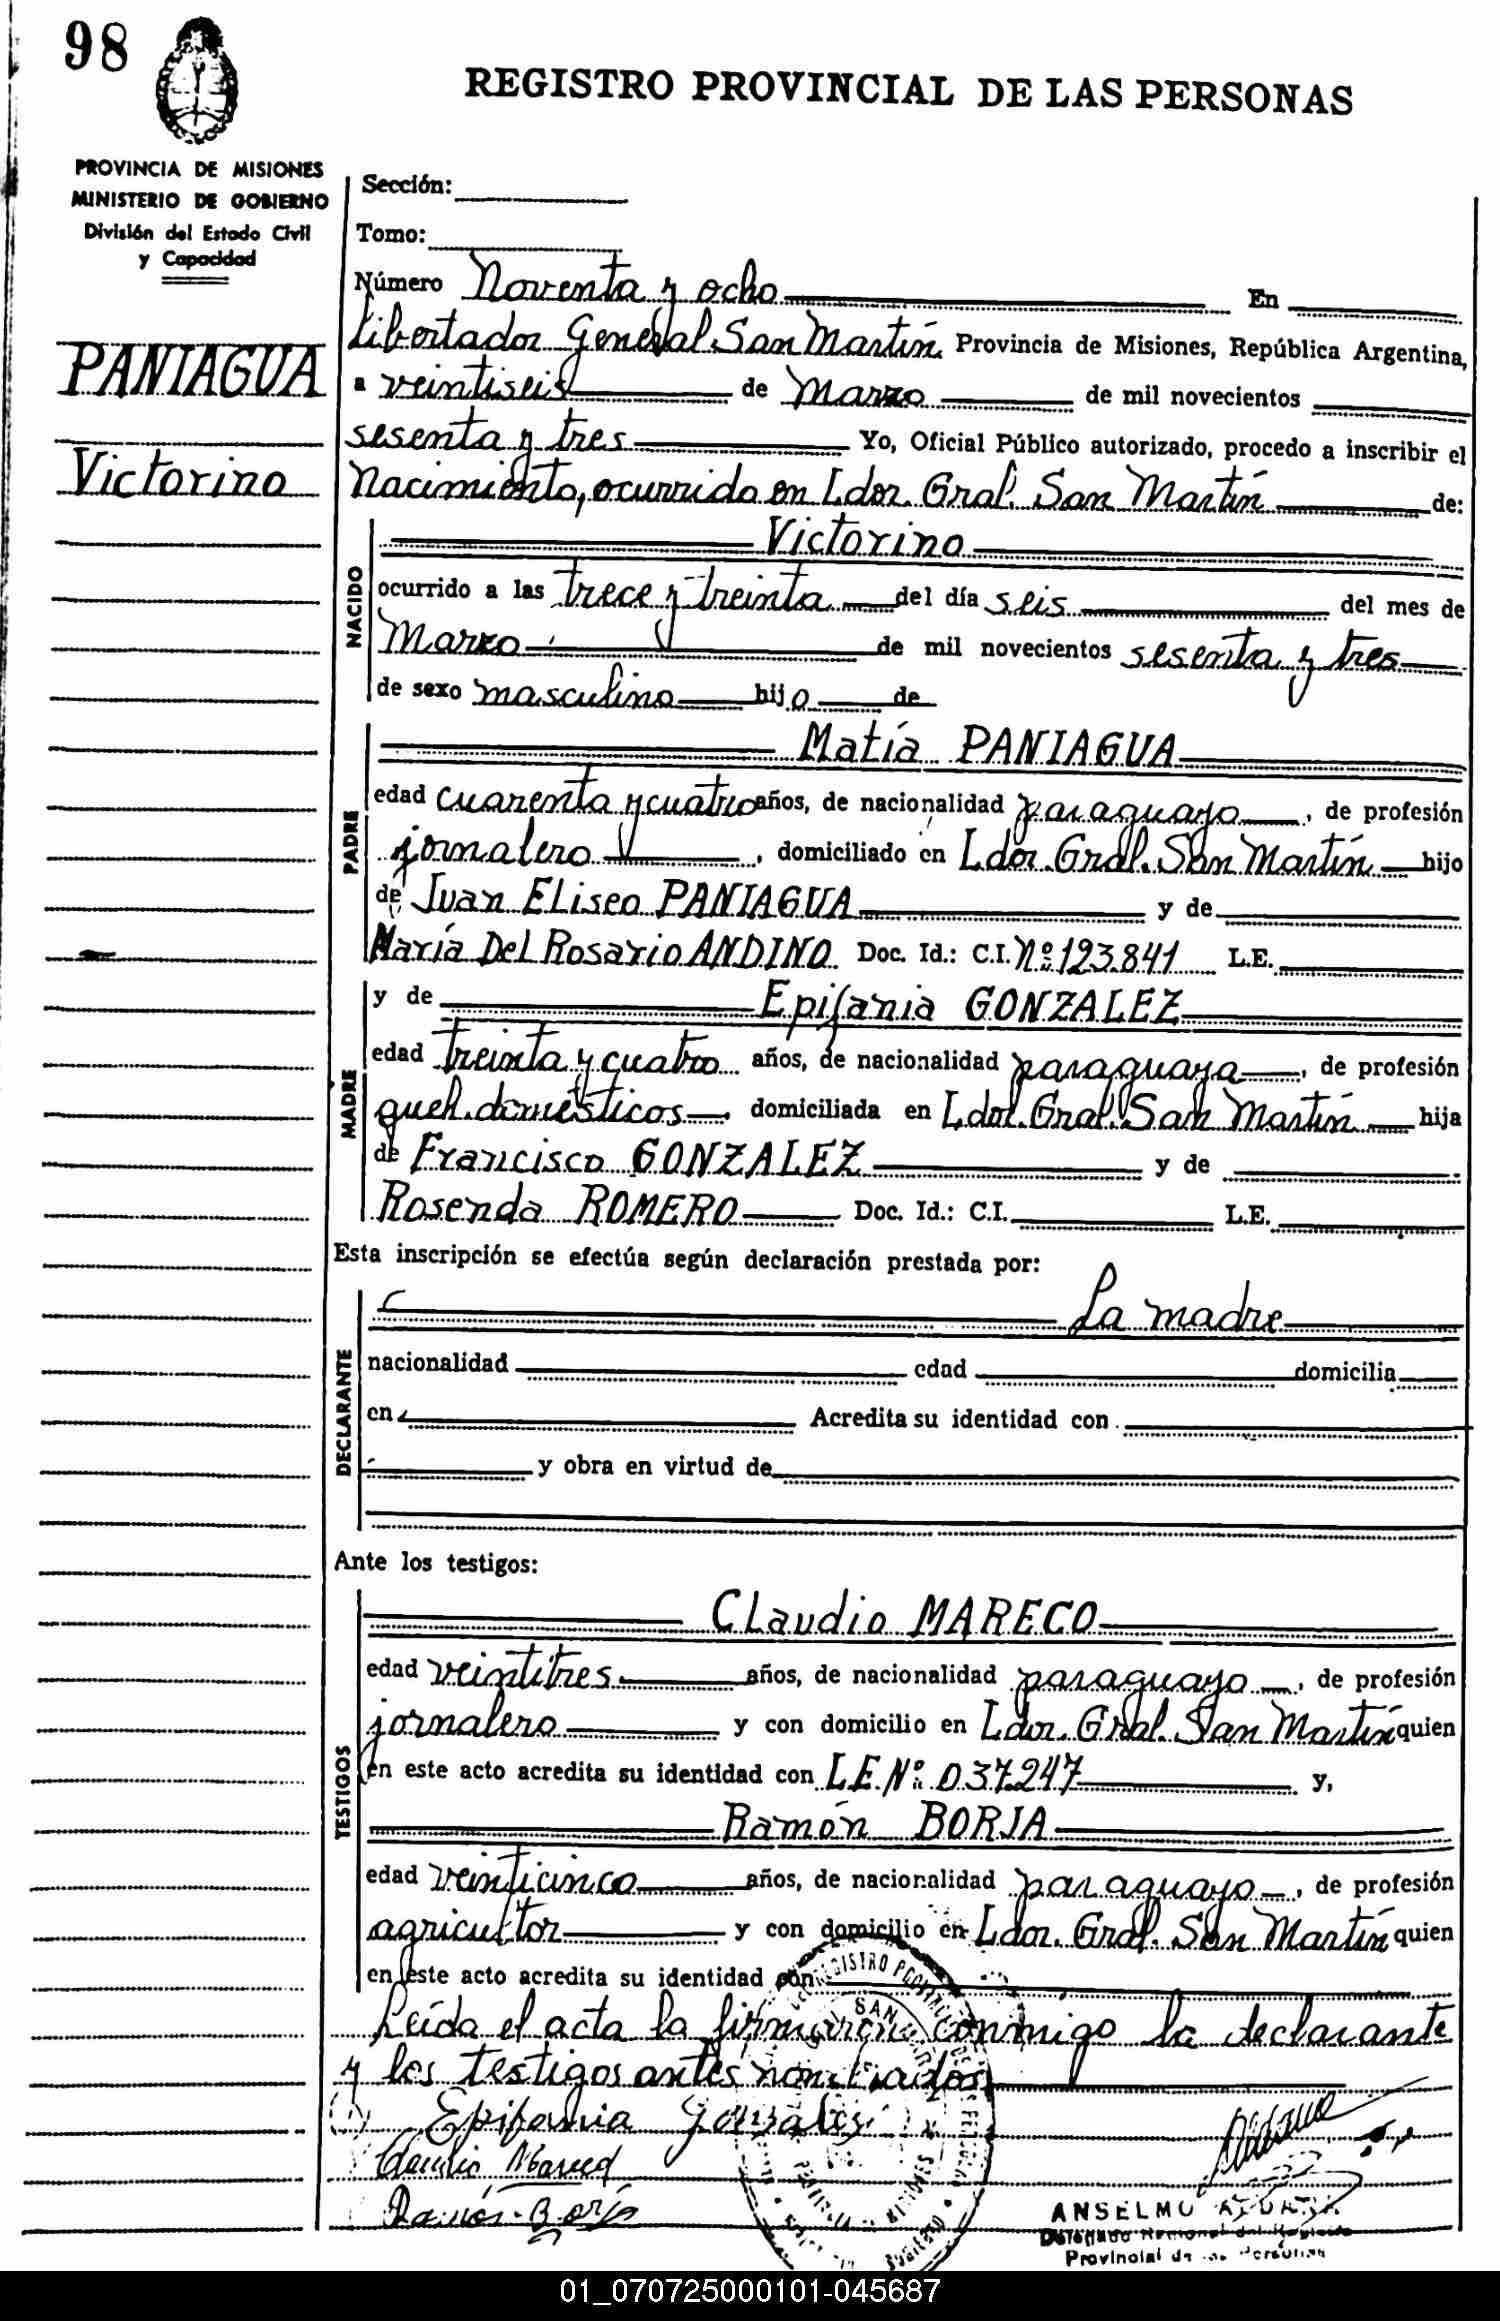 98
REGISTRO PROVINCIAL DE LAS PERSONAS
PROVINCIA DE MISIONES
MINISTERIO DE GOBIERNO
División del Estado Civil
y Capacidad
PANIAGUA
Victorino
Sección:
Tomo:
Número Noventa y ocho En
Libertador General San Martín Provincia de Misiones, República Argentina,
a veintiseis de Marzo de mil novecientos
sesenta y tres Yo, Oficial Público autorizado, procedo a inscribir el
Nacimiento, ocurrido en Ldor. Gral. San Martín de:
NACIDO
Victorino
ocurrido a las trece y treinta del día seis del mes de
Marzo de mil novecientos sesenta y tres
de sexo masculino hijo de
PADRE
Matía PANIAGUA
edad cuarenta y cuatro años, de nacionalidad paraguayo, de profesión
jornalero, domiciliado en Ldor. Gral. San Martín hijo
de Juan Eliseo PANIAGUA y de
María Del Rosario ANDINO Doc. Id.: C.I. Nº 123.841 L.E.
MADRE
y de Epifania GONZALEZ
edad treinta y cuatro años, de nacionalidad paraguaya, de profesión
queh. domésticos, domiciliada en Ldor. Gral. San Martín hija
de Francisco GONZALEZ y de
Rosenda ROMERO Doc. Id.: C.I. L.E.
Esta inscripción se efectúa según declaración prestada por:
DECLARANTE
La madre
nacionalidad edad domicilia
en Acredita su identidad con
y obra en virtud de
Ante los testigos:
TESTIGOS
Claudio MARECO
edad veintitres años, de nacionalidad paraguayo, de profesión
jornalero y con domicilio en Ldor. Gral. San Martín quien
en este acto acredita su identidad con L.E. Nº 037.247 y,
Ramón BORJA
edad veinticinco años, de nacionalidad paraguayo, de profesión
agricultor y con domicilio en Ldor. Gral. San Martín quien
en este acto acredita su identidad con
Leída el acta la firmaron conmigo la declarante
y los testigos antes nombrados
Epifania Gonzales
Claudio Mareco
Ramón Borja
ANSELMO
Delegado Regional del Registro
Provincial de las Personas
01_070725000101-045687